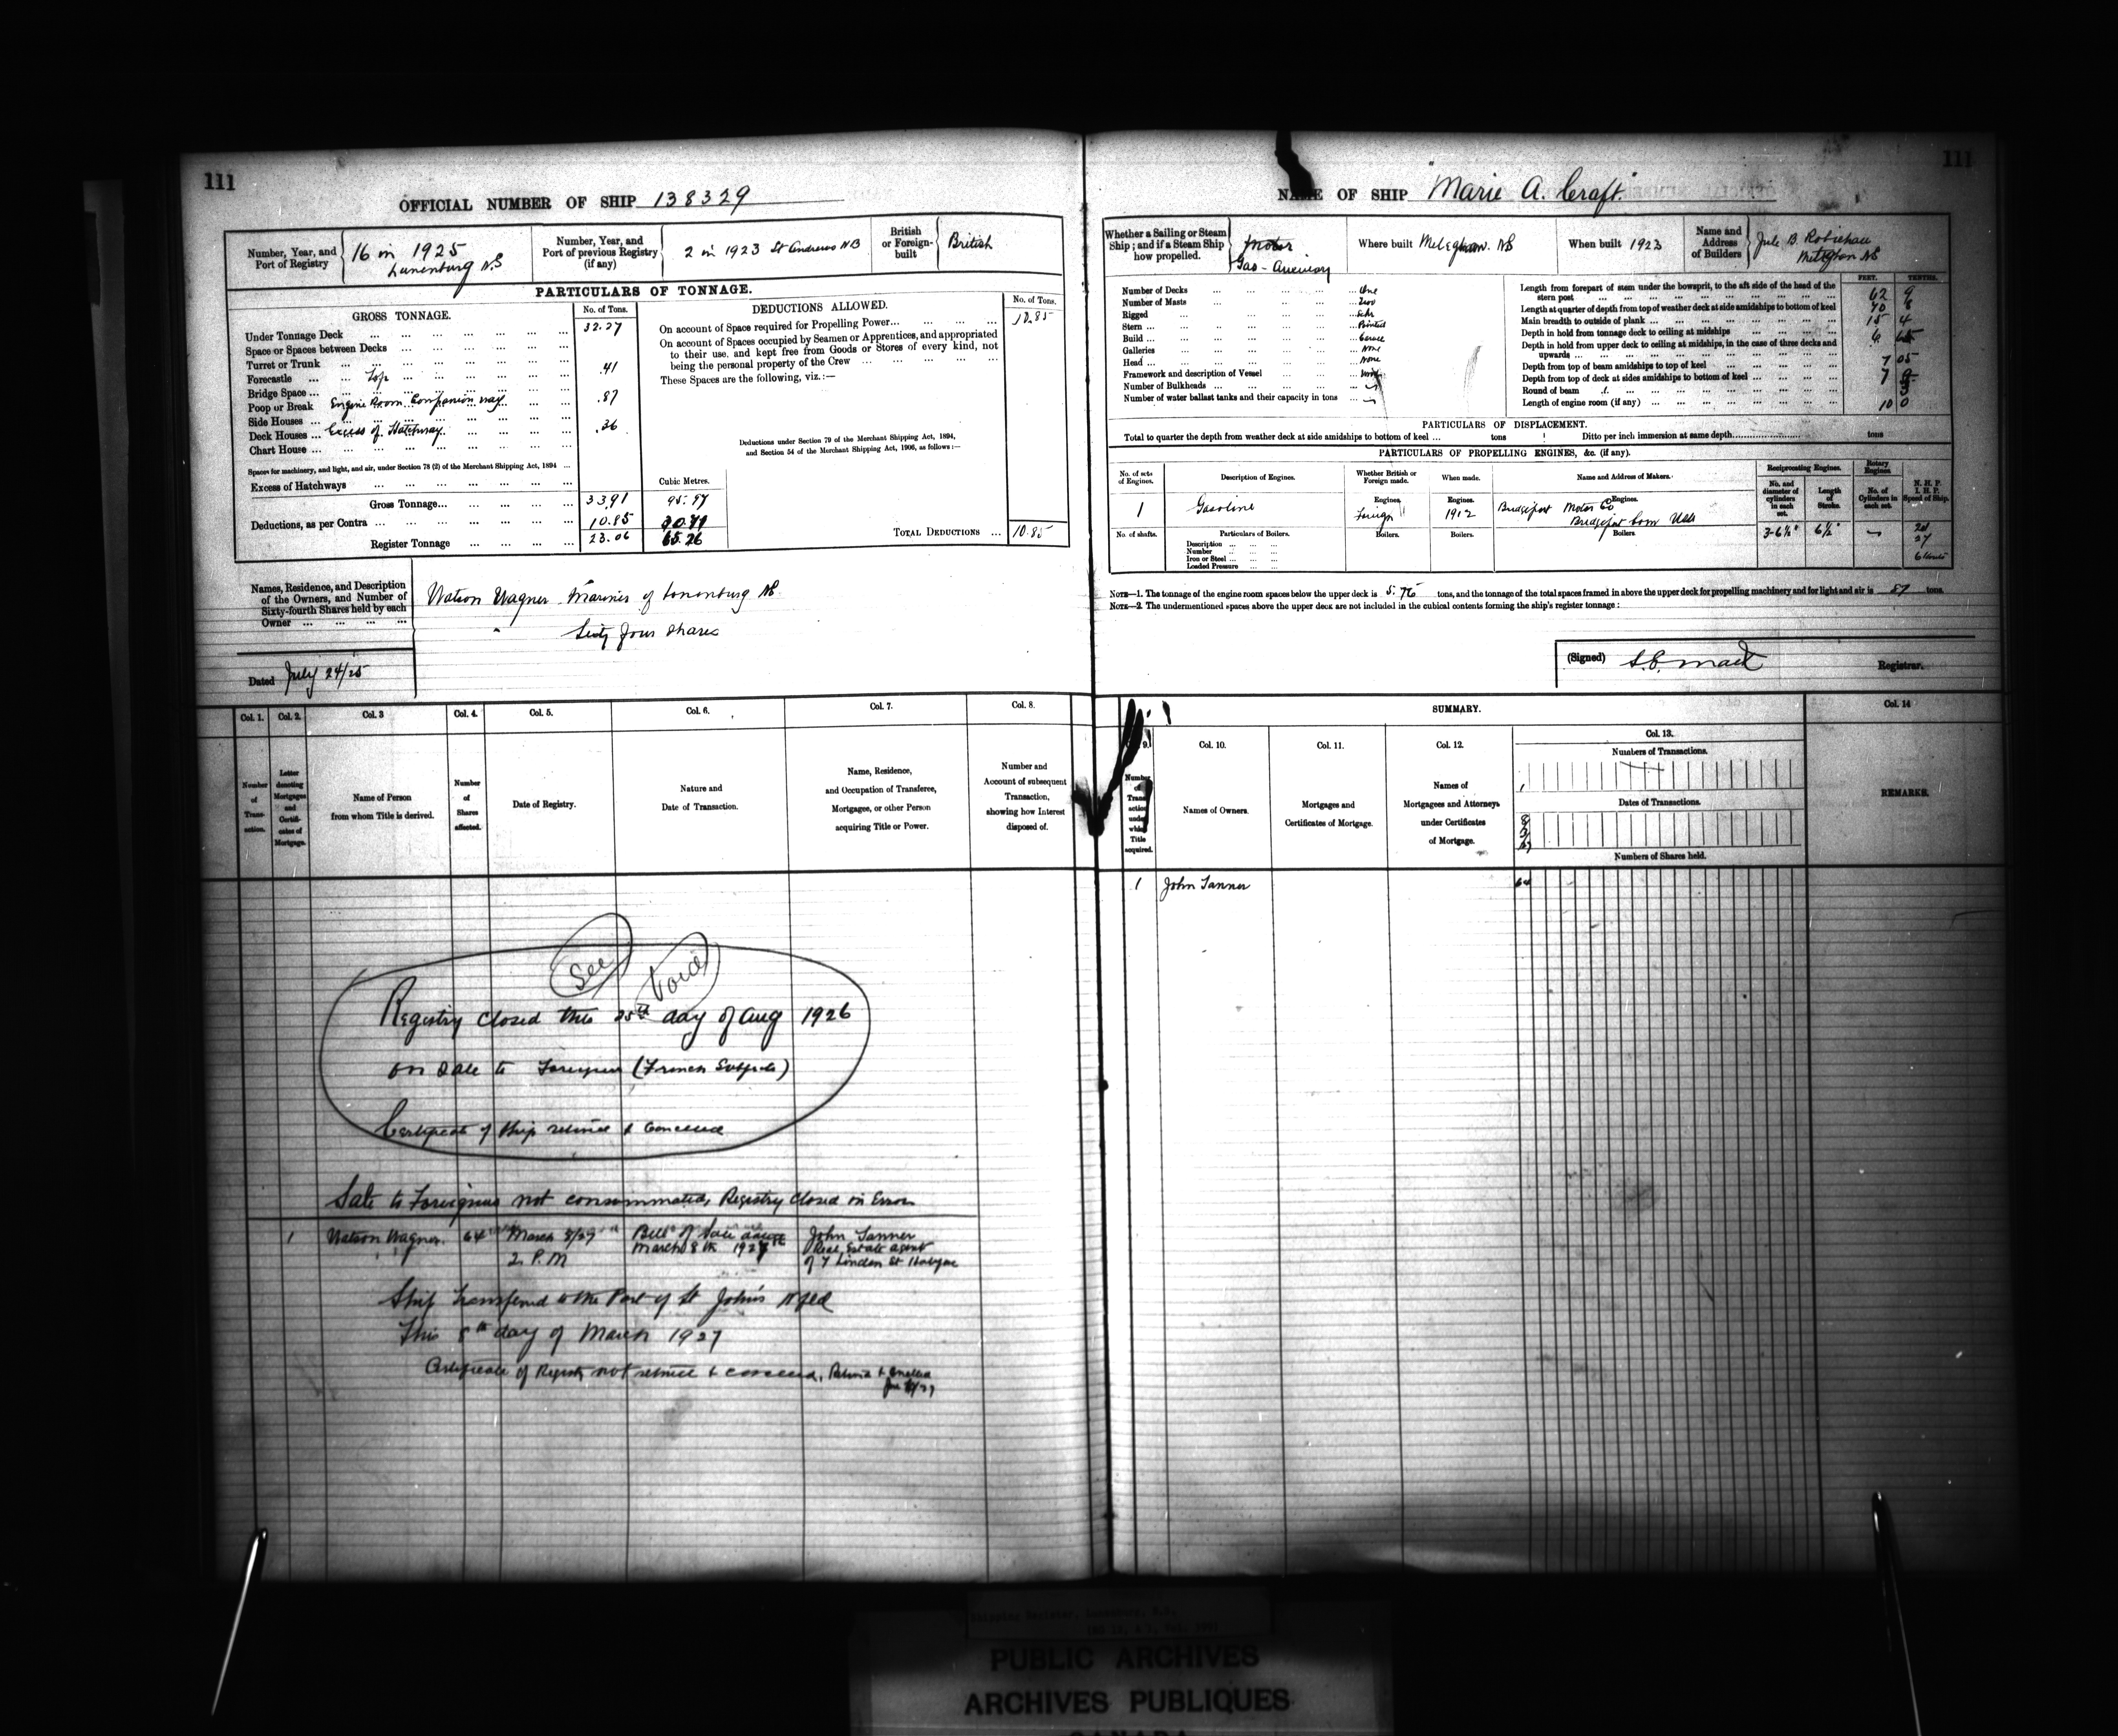 111
OFFICIAL NUMBER OF SHIP 138329
Number, Year, and Port of Registry
16 in 1925
Lunenburg N.S
Number, Year, and Port of previous Registry (if any)
2 in 1923 St Andrews NB
British or Foreign-built
British
PARTICULARS OF TONNAGE.
GROSS TONNAGE.
No. of Tons.
Under Tonnage Deck ... 32.27
Space or Spaces between Decks ...
Turret or Trunk ...
Forecastle ... Top ... .41
Bridge Space ...
Poop or Break Engine Room Companion way .87
Side Houses ...
Deck Houses ... Excess of Hatchway .36
Chart House ...
Spaces for machinery, and light, and air, under Section 78 (2) of the Merchant Shipping Act, 1894 ...
Excess of Hatchways ...
Cubic Metres.
Gross Tonnage... 33.91 95.97
Deductions, as per Contra ... 10.85 30.71
Register Tonnage ... 23.06 65.26
DEDUCTIONS ALLOWED.
No. of Tons.
On account of Space required for Propelling Power... 10.85
On account of Spaces occupied by Seamen or Apprentices, and appropriated
to their use, and kept free from Goods or Stores of every kind, not
being the personal property of the Crew ...
These Spaces are the following, viz.:—
Deductions under Section 79 of the Merchant Shipping Act, 1894,
and Section 54 of the Merchant Shipping Act, 1906, as follows:—
TOTAL DEDUCTIONS ... 10.85
Names, Residence, and Description
of the Owners, and Number of
Sixty-fourth Shares held by each
Owner ...
Watson Wagner Mariner of Lunenburg NS
Sixty four shares
Dated July 24/25
Col. 1. Col. 2. Col. 3 Col. 4. Col. 5. Col. 6. Col. 7. Col. 8.
Number of Transaction.
Letter denoting Mortgages and Certificates of Mortgage.
Name of Person
from whom Title is derived.
Number of Shares affected.
Date of Registry.
Nature and
Date of Transaction.
Name, Residence,
and Occupation of Transferee,
Mortgagee, or other Person
acquiring Title or Power.
Number and
Account of subsequent
Transaction,
showing how Interest
disposed of.
See
Void
Registry closed this 25th day of Aug 1926
on Sale to Foreigners (French Subjects)
Certificate of Ship retired & Cancelled
Sale to Foreigners not consummated, Registry closed in Error
1 Watson Wagner. 64 March 8/27 2. P.M Bill of Sale dated March 8th 1927 John Tanner
Real Estate agent
of 7 Linden St
Ship transferred to the Port of St John's Nfld
This 8th day of March 1927
Certificate of Registry not retired & cancelled,
111
NAME OF SHIP "Marie A. Craft."
Whether a Sailing or Steam Ship; and if a Steam Ship how propelled.
Motor
Gas-Auxiliary
Where built Meteghan. NS
When built 1923
Name and Address of Builders
Jule B. Robichau
Meteghan NS
Number of Decks ... One
Number of Masts ... Two
Rigged ... Schr
Stern ...
Build ... Carvel
Galleries ... None
Head ... None
Framework and description of Vessel ... Wood
Number of Bulkheads ...
Number of water ballast tanks and their capacity in tons ...
FEET. TENTHS.
Length from forepart of stem under the bowsprit, to the aft side of the head of the
stern post ... 62 9
Length at quarter of depth from top of weather deck at side amidships to bottom of keel
Main breadth to outside of plank ... 15 4
Depth in hold from tonnage deck to ceiling at midships ... 6
Depth in hold from upper deck to ceiling at midships, in the case of three decks and
upwards ...
Depth from top of beam amidships to top of keel ... 7 05
Depth from top of deck at sides amidships to bottom of keel ... 7
Round of beam ...
Length of engine room (if any) ... 10 0
PARTICULARS OF DISPLACEMENT.
Total to quarter the depth from weather deck at side amidships to bottom of keel ... tons Ditto per inch immersion at same depth ... tons
PARTICULARS OF PROPELLING ENGINES, &c. (if any).
No. of sets of Engines.
Description of Engines.
Whether British or Foreign made.
When made.
Name and Address of Makers.
Reciprocating Engines.
No. and diameter of cylinders in each set.
Length of Stroke.
Rotary Engines.
No. of Cylinders in each set.
N. H. P.
I. H. P.
Speed of Ship.
1 Gasoline
Engines. Foreign
Engines. 1912
Engines. Bridgeport Motor Co
Bridgeport Conn USA
3-6½" 6½"
No. of shafts.
Particulars of Boilers.
Boilers. Boilers. Boilers.
Description ...
Number ...
Iron or Steel ...
Loaded Pressure ...
27
NOTE—1. The tonnage of the engine room spaces below the upper deck is 5.76 tons, and the tonnage of the total spaces framed in above the upper deck for propelling machinery and for light and air is .87 tons.
NOTE—2. The undermentioned spaces above the upper deck are not included in the cubical contents forming the ship's register tonnage:
(Signed) Registrar.
SUMMARY.
Col. 14
9. Col. 10. Col. 11. Col. 12. Col. 13.
Number of Transaction under which Title acquired.
Names of Owners.
Mortgages and
Certificates of Mortgage.
Names of
Mortgagees and Attorneys
under Certificates
of Mortgage.
Numbers of Transactions.
Dates of Transactions.
Numbers of Shares held.
REMARKS.
1 John Tanner 64
PUBLIC ARCHIVES
ARCHIVES PUBLIQUES
CANADA